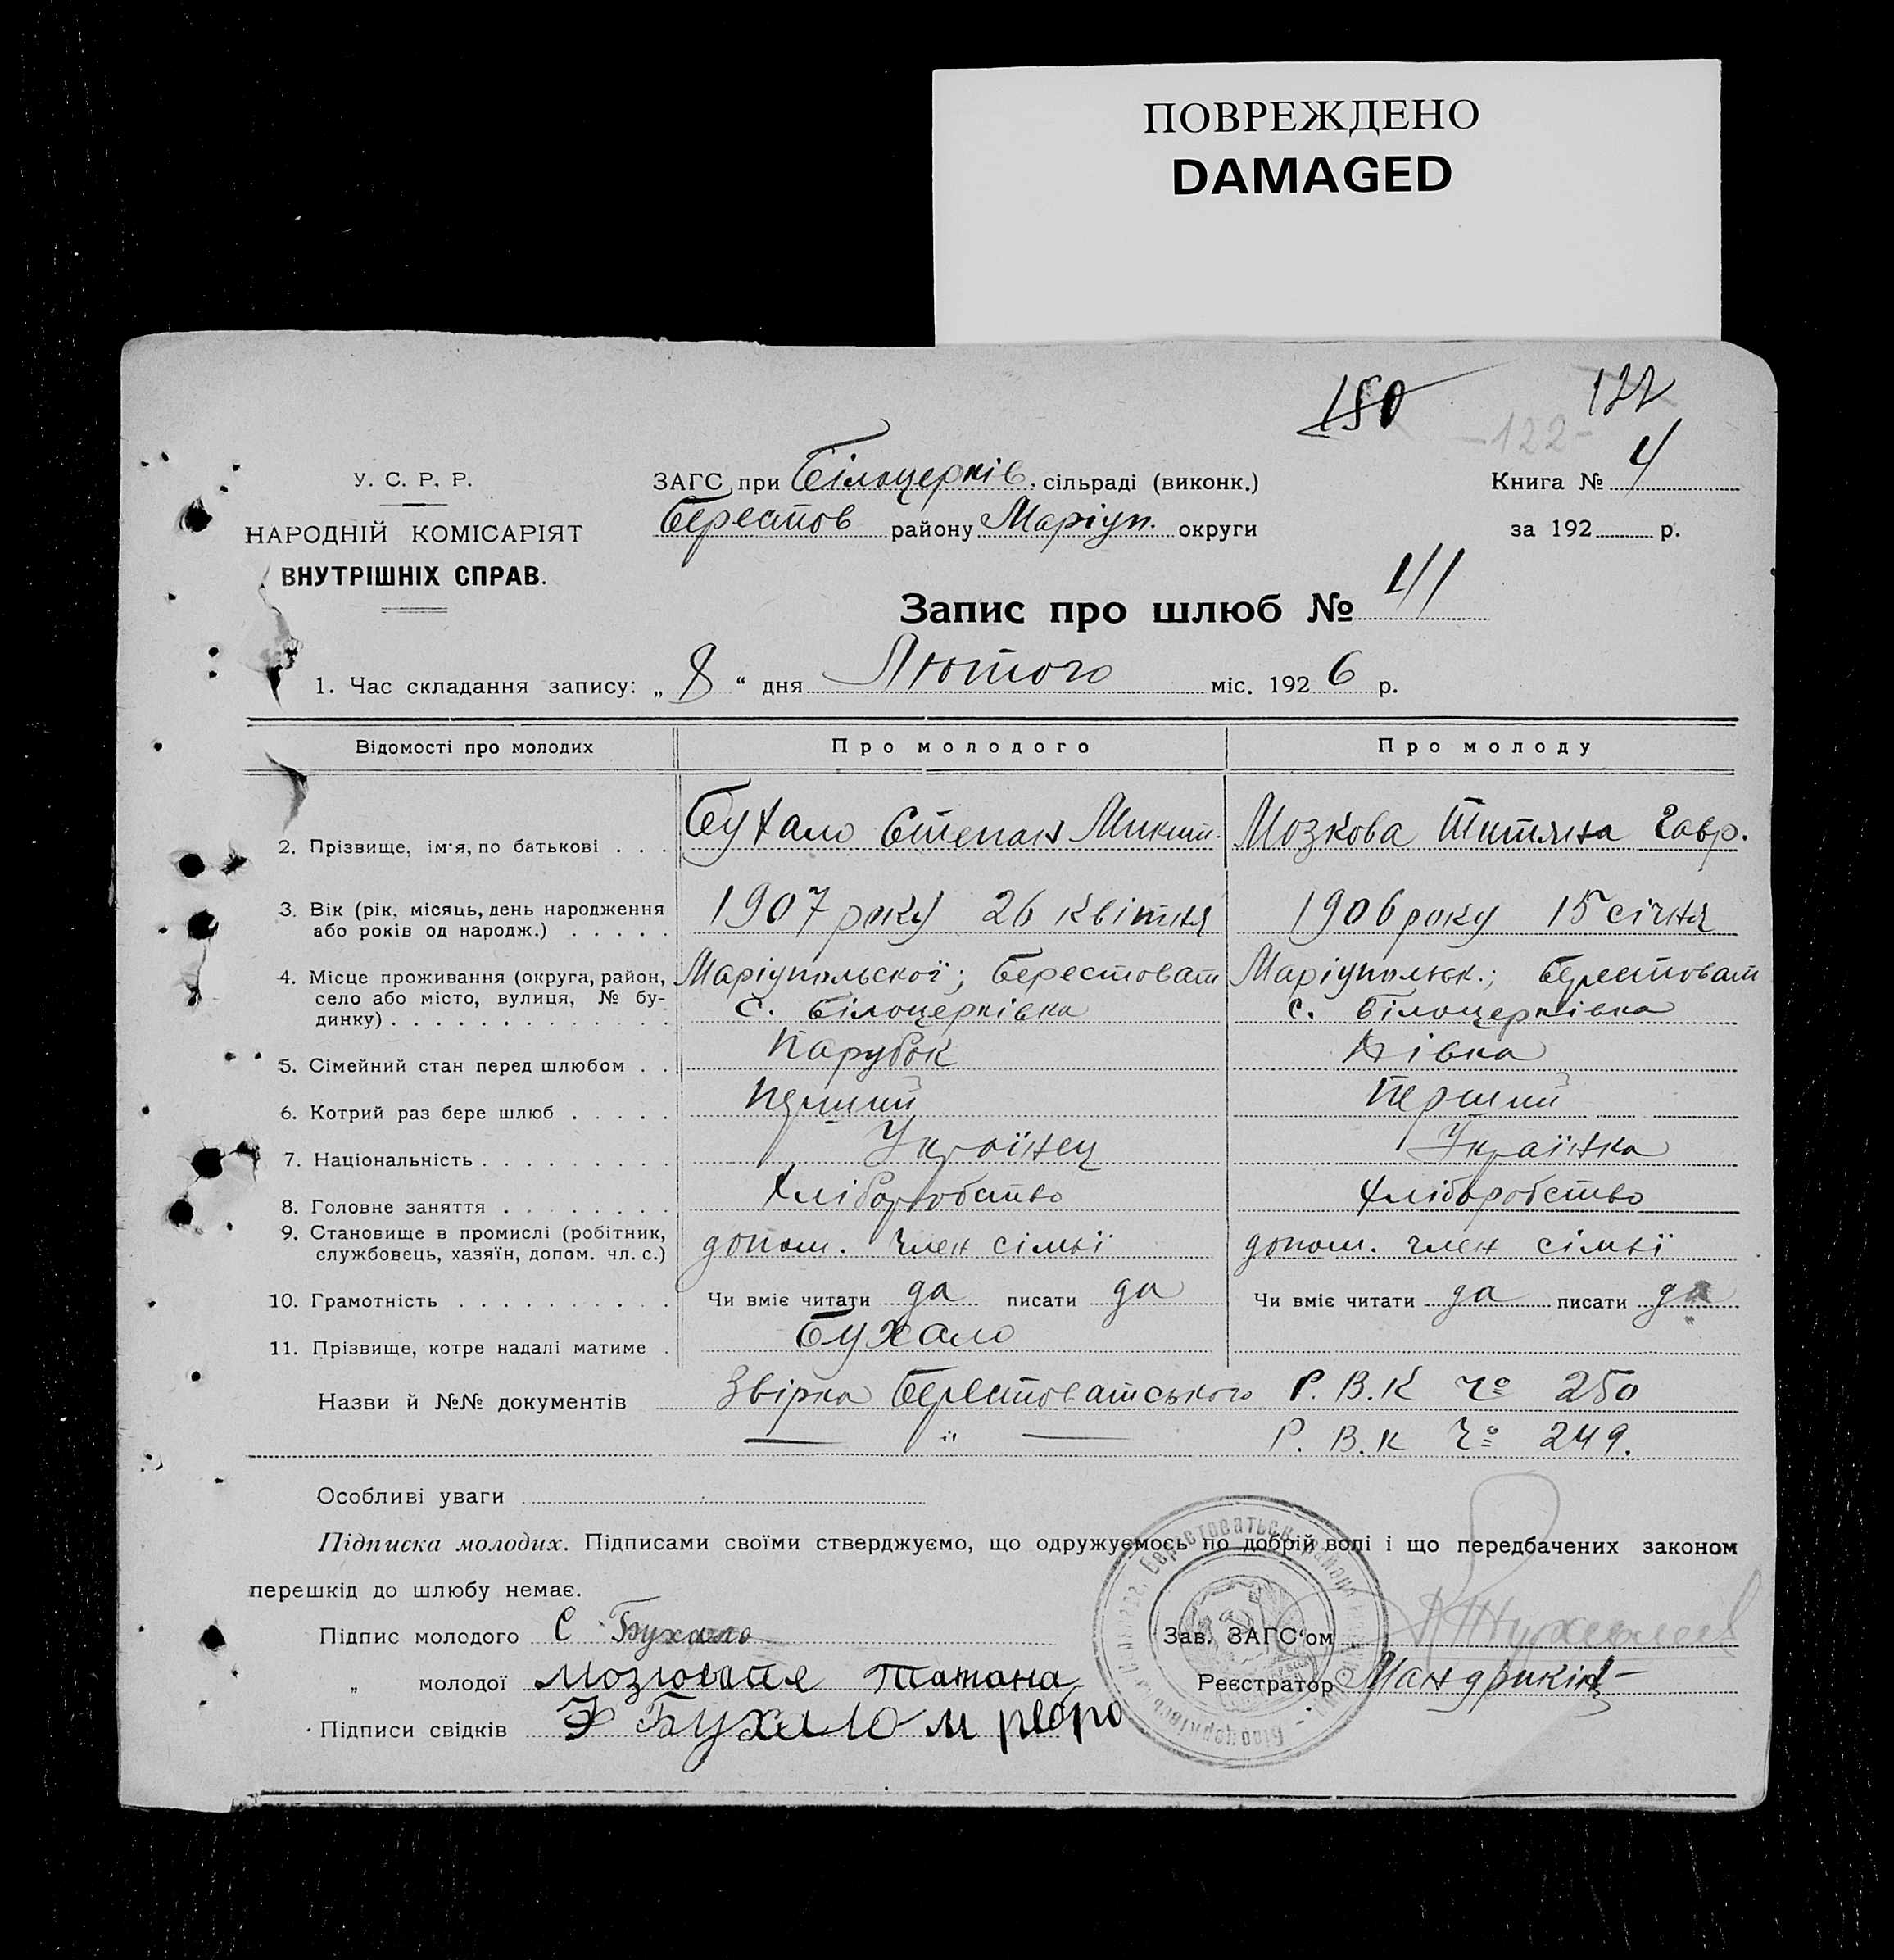 ПОВРЕЖДЕНО
DAMAGED
150
122
-122-
У. С. Р. Р.
НАРОДНІЙ КОМІСАРІЯТ
ВНУТРІШНІХ СПРАВ.
ЗАГС при Білоцерків. сільраді (виконк.)
Берестов району Маріуп. округи
Книга № 4
за 192 р.
Запис про шлюб № 41
1. Час складання запису: „ 8 “ дня Лютого міс. 1926 р.
Відомості про молодих Про молодого Про молоду
2. Прізвище, ім'я, по батькові . . . Бухало Степан Микит. Мозкова Титяна Гавр.
3. Вік (рік, місяць, день народження
або років од народж.) . . . . . 1907 року 26 квітня 1906 року 15 січня
4. Місце проживання (округа, район, Маріупольскої; Берестоват Маріупольск.; Берестоват
село або місто, вулиця, № бу-
динку) . . . . . . . . . . . . . с. Білоцерківка с. Білоцерківка
5. Сімейний стан перед шлюбом . . Парубок Дівка
6. Котрий раз бере шлюб . . . . . Перший Перший
7. Національність . . . . . . . . . Українец Українка
8. Головне заняття . . . . . . . . Хліборобство Хліборобство
9. Становище в промислі (робітник,
службовець, хазяїн, допом. чл. с.) допом. член сімьї допом. член сімьї
10. Грамотність . . . . . . . . . . Чи вміє читати да писати да Чи вміє читати да писати да
11. Прізвище, котре надалі матиме . Бухало
Назви й №№ документів Звірка Берестоватського Р.В.К Чо 250
— " — Р. В. К Чо 249.
Особливі уваги
Підписка молодих. Підписами своїми стверджуємо, що одружуємось по добрій волі і що передбачених законом
перешкід до шлюбу немає.
Підпис молодого С Бухало
Зав. ЗАГС'ом
„ молодої Татяна
Реєстратор Мандрикін
Підписи свідків Бухало